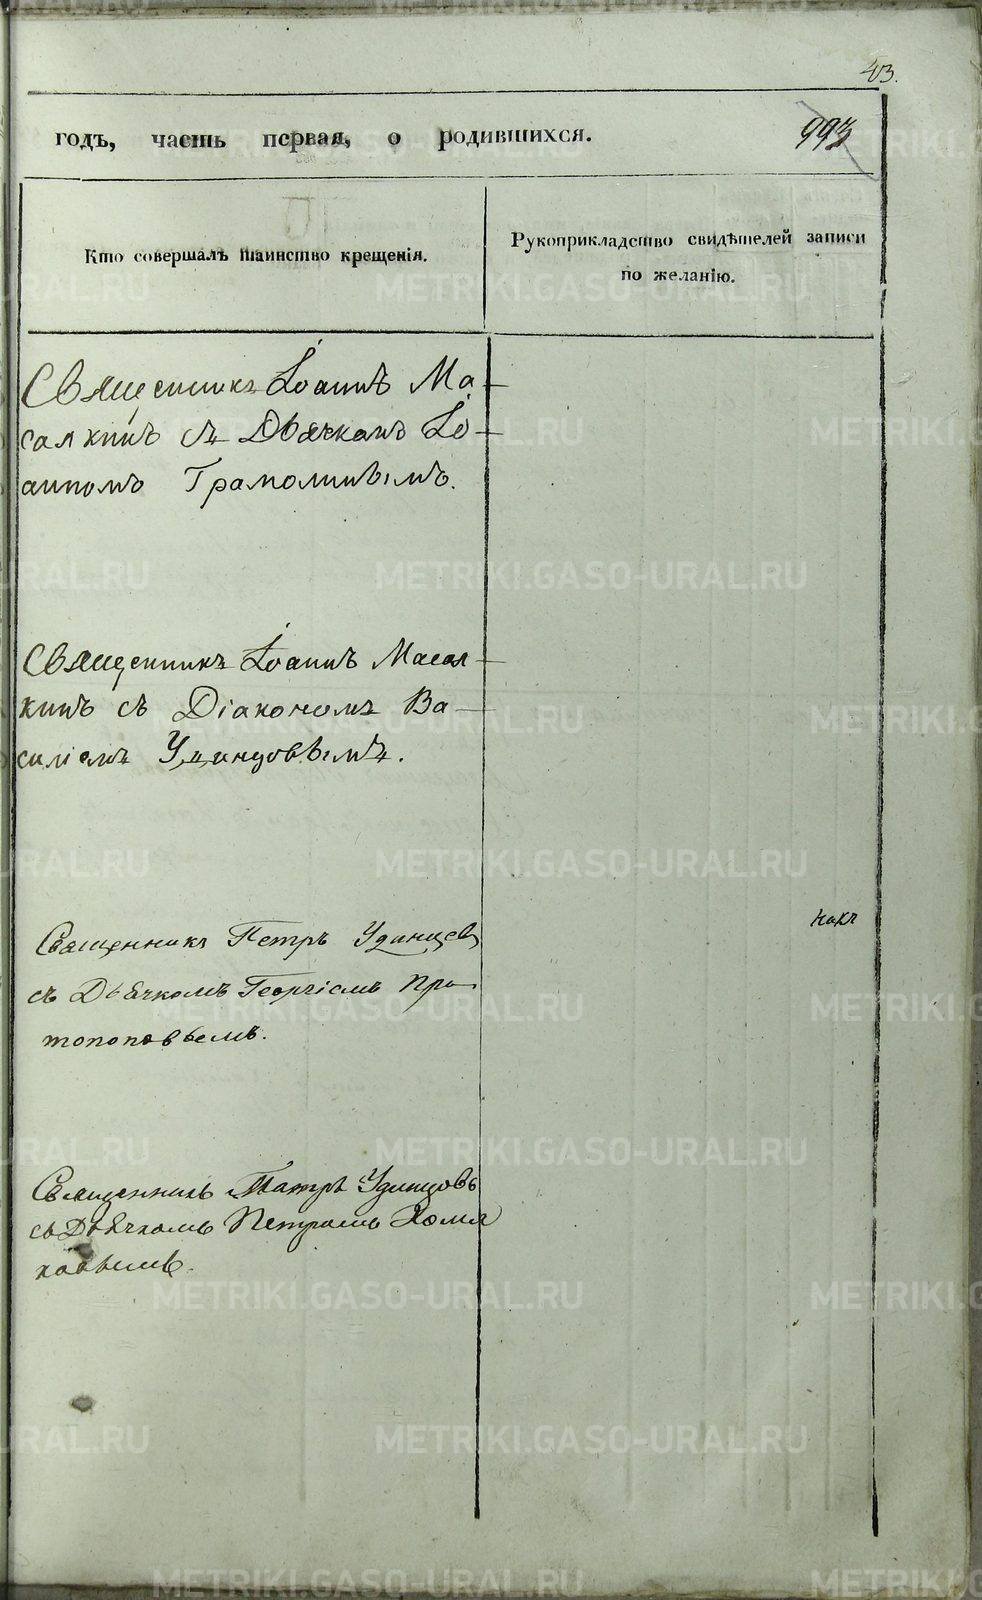 43.
годъ, часть первая, о родившихся.
993
Кто совершалъ таинство крещенія.
Рукоприкладство свидѣтелей записи
по желанію.
Священникъ Іоаннъ Ма-
салкинъ съ Дьячкомъ Іо-
анномъ Грамолинымъ.
Священникъ Іоаннъ Масал-
кинъ съ Діакономъ Ва-
силіемъ Удинцовымъ.
Священникъ Петръ Удинцев
съ Дьячкомъ Георгіемъ Про
топоповымъ.
Священникъ Петръ Удинцовъ
съ Дьячкомъ Петромъ Хомя
ковымъ.
METRIKI.GASO-URAL.RU